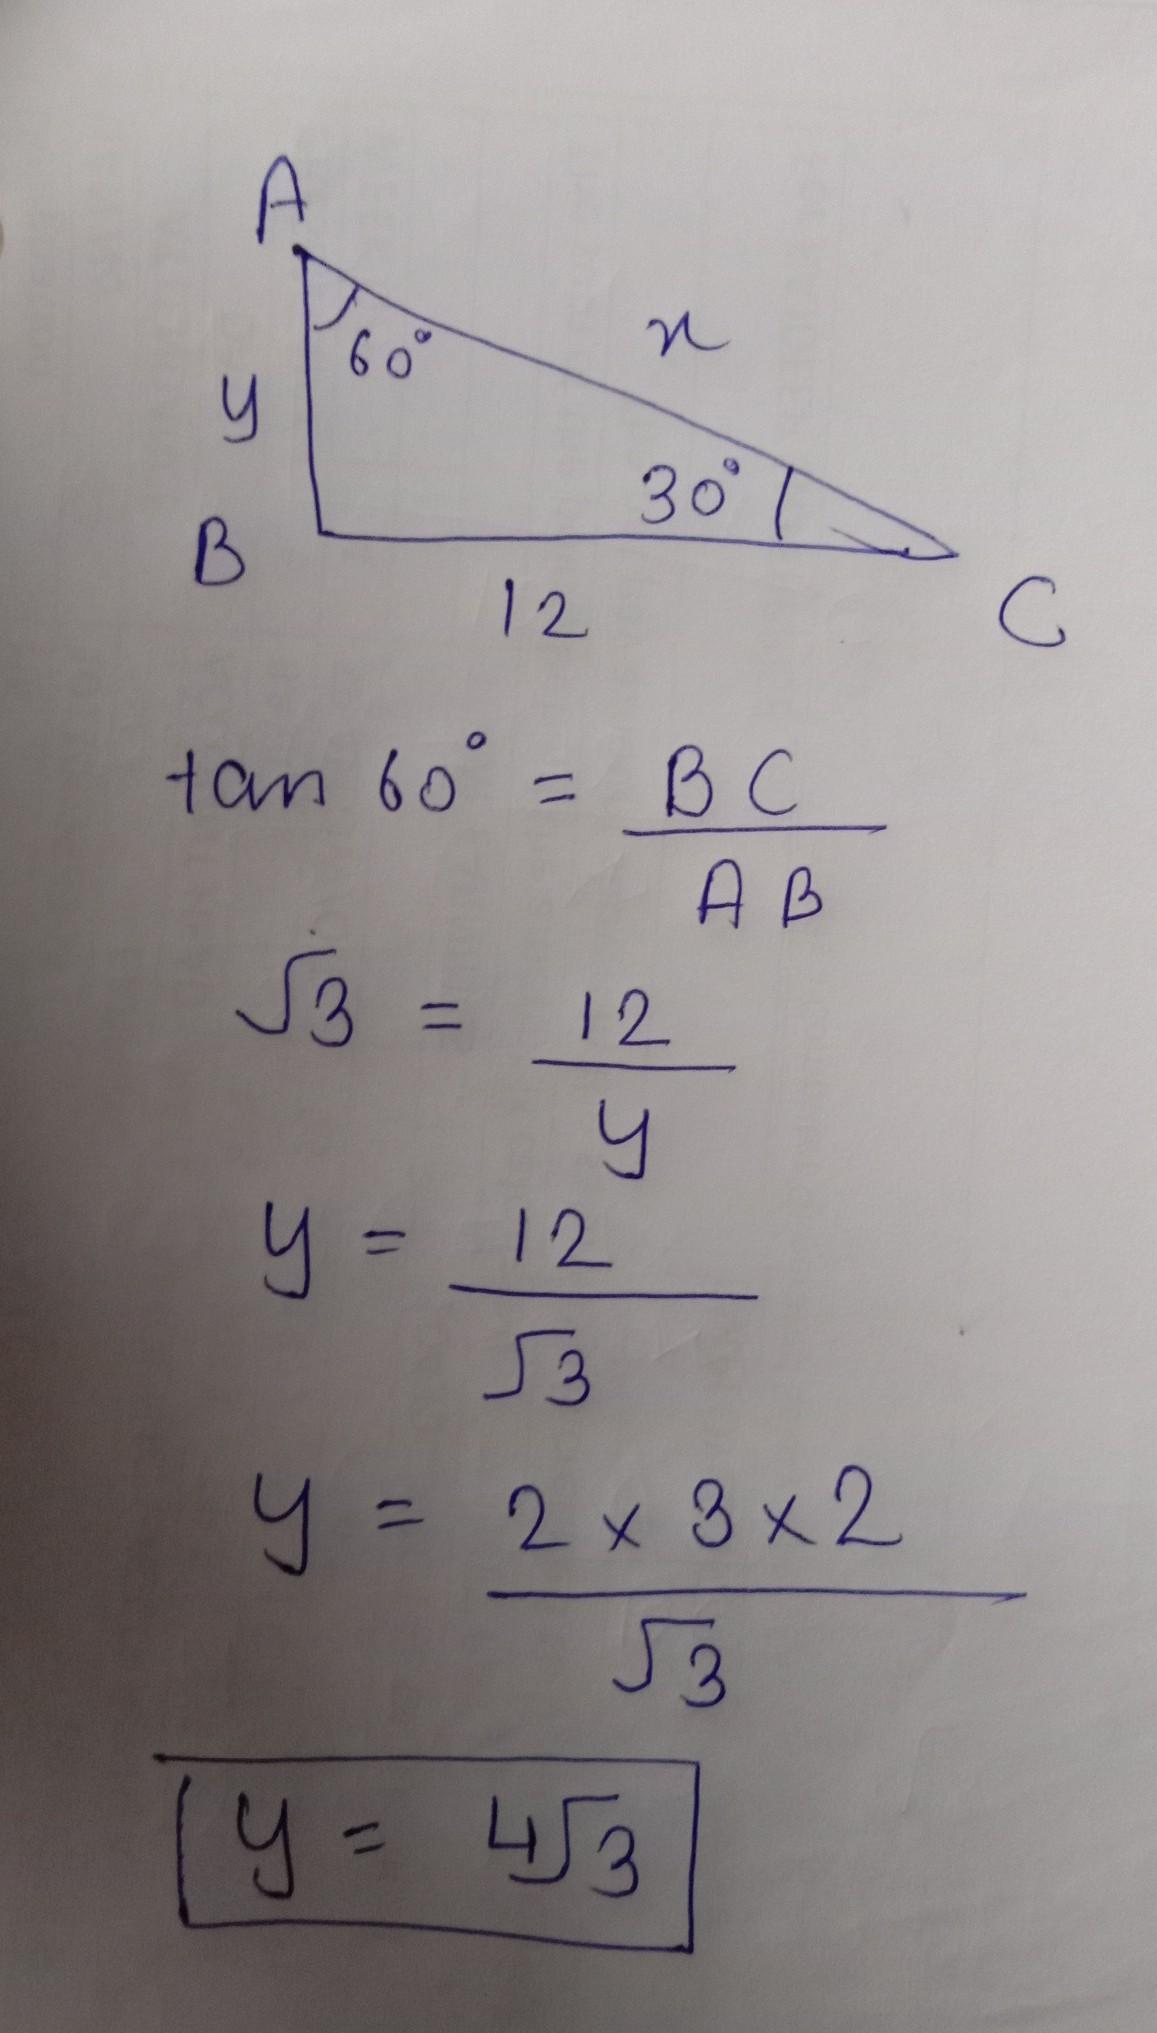 A
60°
x
y
30°
B
12
C
tan 60° = BC
AB
√3 = 12
y
y = 12
√3
y = 2 x 3 x 2
√3
y = 4√3